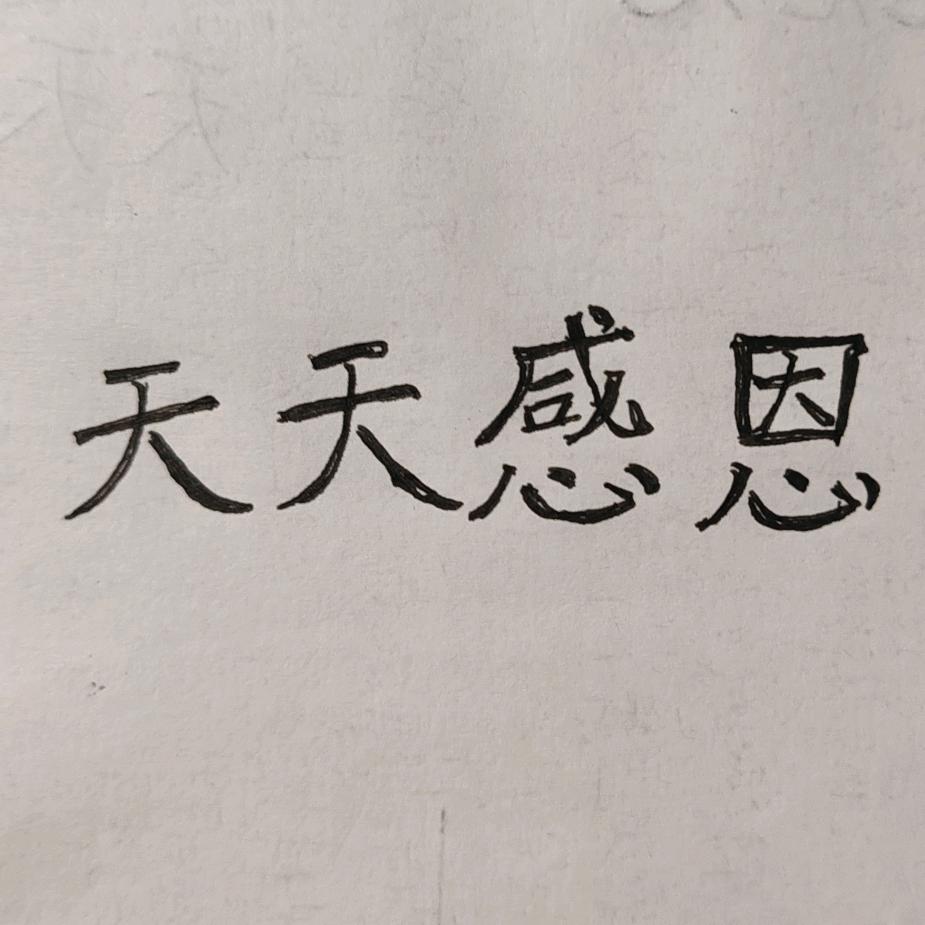 天天感恩